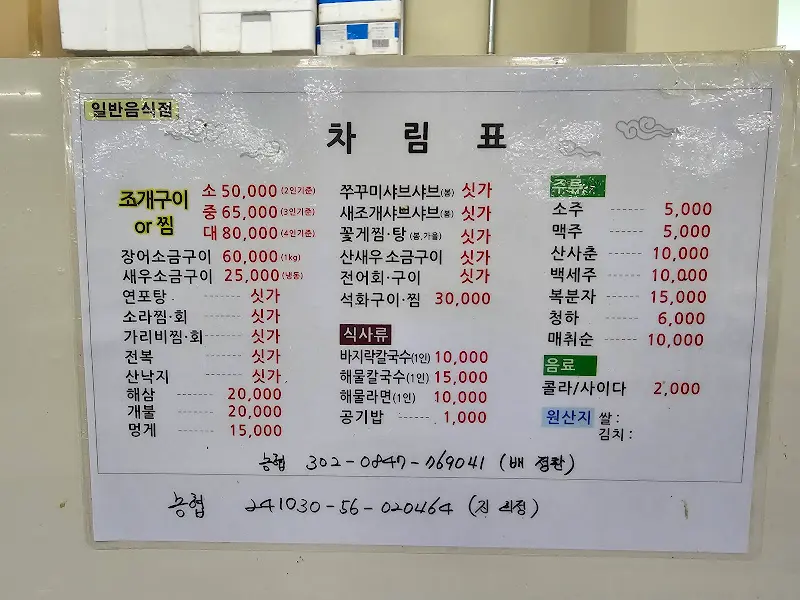 일반음식점
차 림 표
조개구이
or 찜
소 50,000 (2인기준)
중 65,000 (3인기준)
대 80,000 (4인기준)
장어소금구이 60,000 (1kg)
새우소금구이 25,000 (냉동)
연포탕 ------ 싯가
소라찜·회 ------ 싯가
가리비찜·회 ------ 싯가
전복 ------ 싯가
산낙지 ------ 싯가
해삼 ------ 20,000
개불 ------ 20,000
멍게 ------ 15,000
쭈꾸미샤브샤브(봄) 싯가
새조개샤쁘샤브(봄) 싯가
꽃게찜·탕 (봄,가을) 싯가
산새우소금구이 싯가
전어회·구이 싯가
석화구이·찜 30,000
식사류
바지락칼국수(1인) 10,000
해물칼국수(1인) 15,000
해물라면(1인) 10,000
공기밥 ------ 1,000
주류
소주 ------ 5,000
맥주 ------ 5,000
산사춘 ------ 10,000
백세주 ------ 10,000
복분자 ------ 15,000
청하 ------ 6,000
매취순 ------ 10,000
음료
콜라/사이다 2,000
원산지 쌀 :
김치 :
농협 302-0847-7769041 (배
농협 241030-56-020464